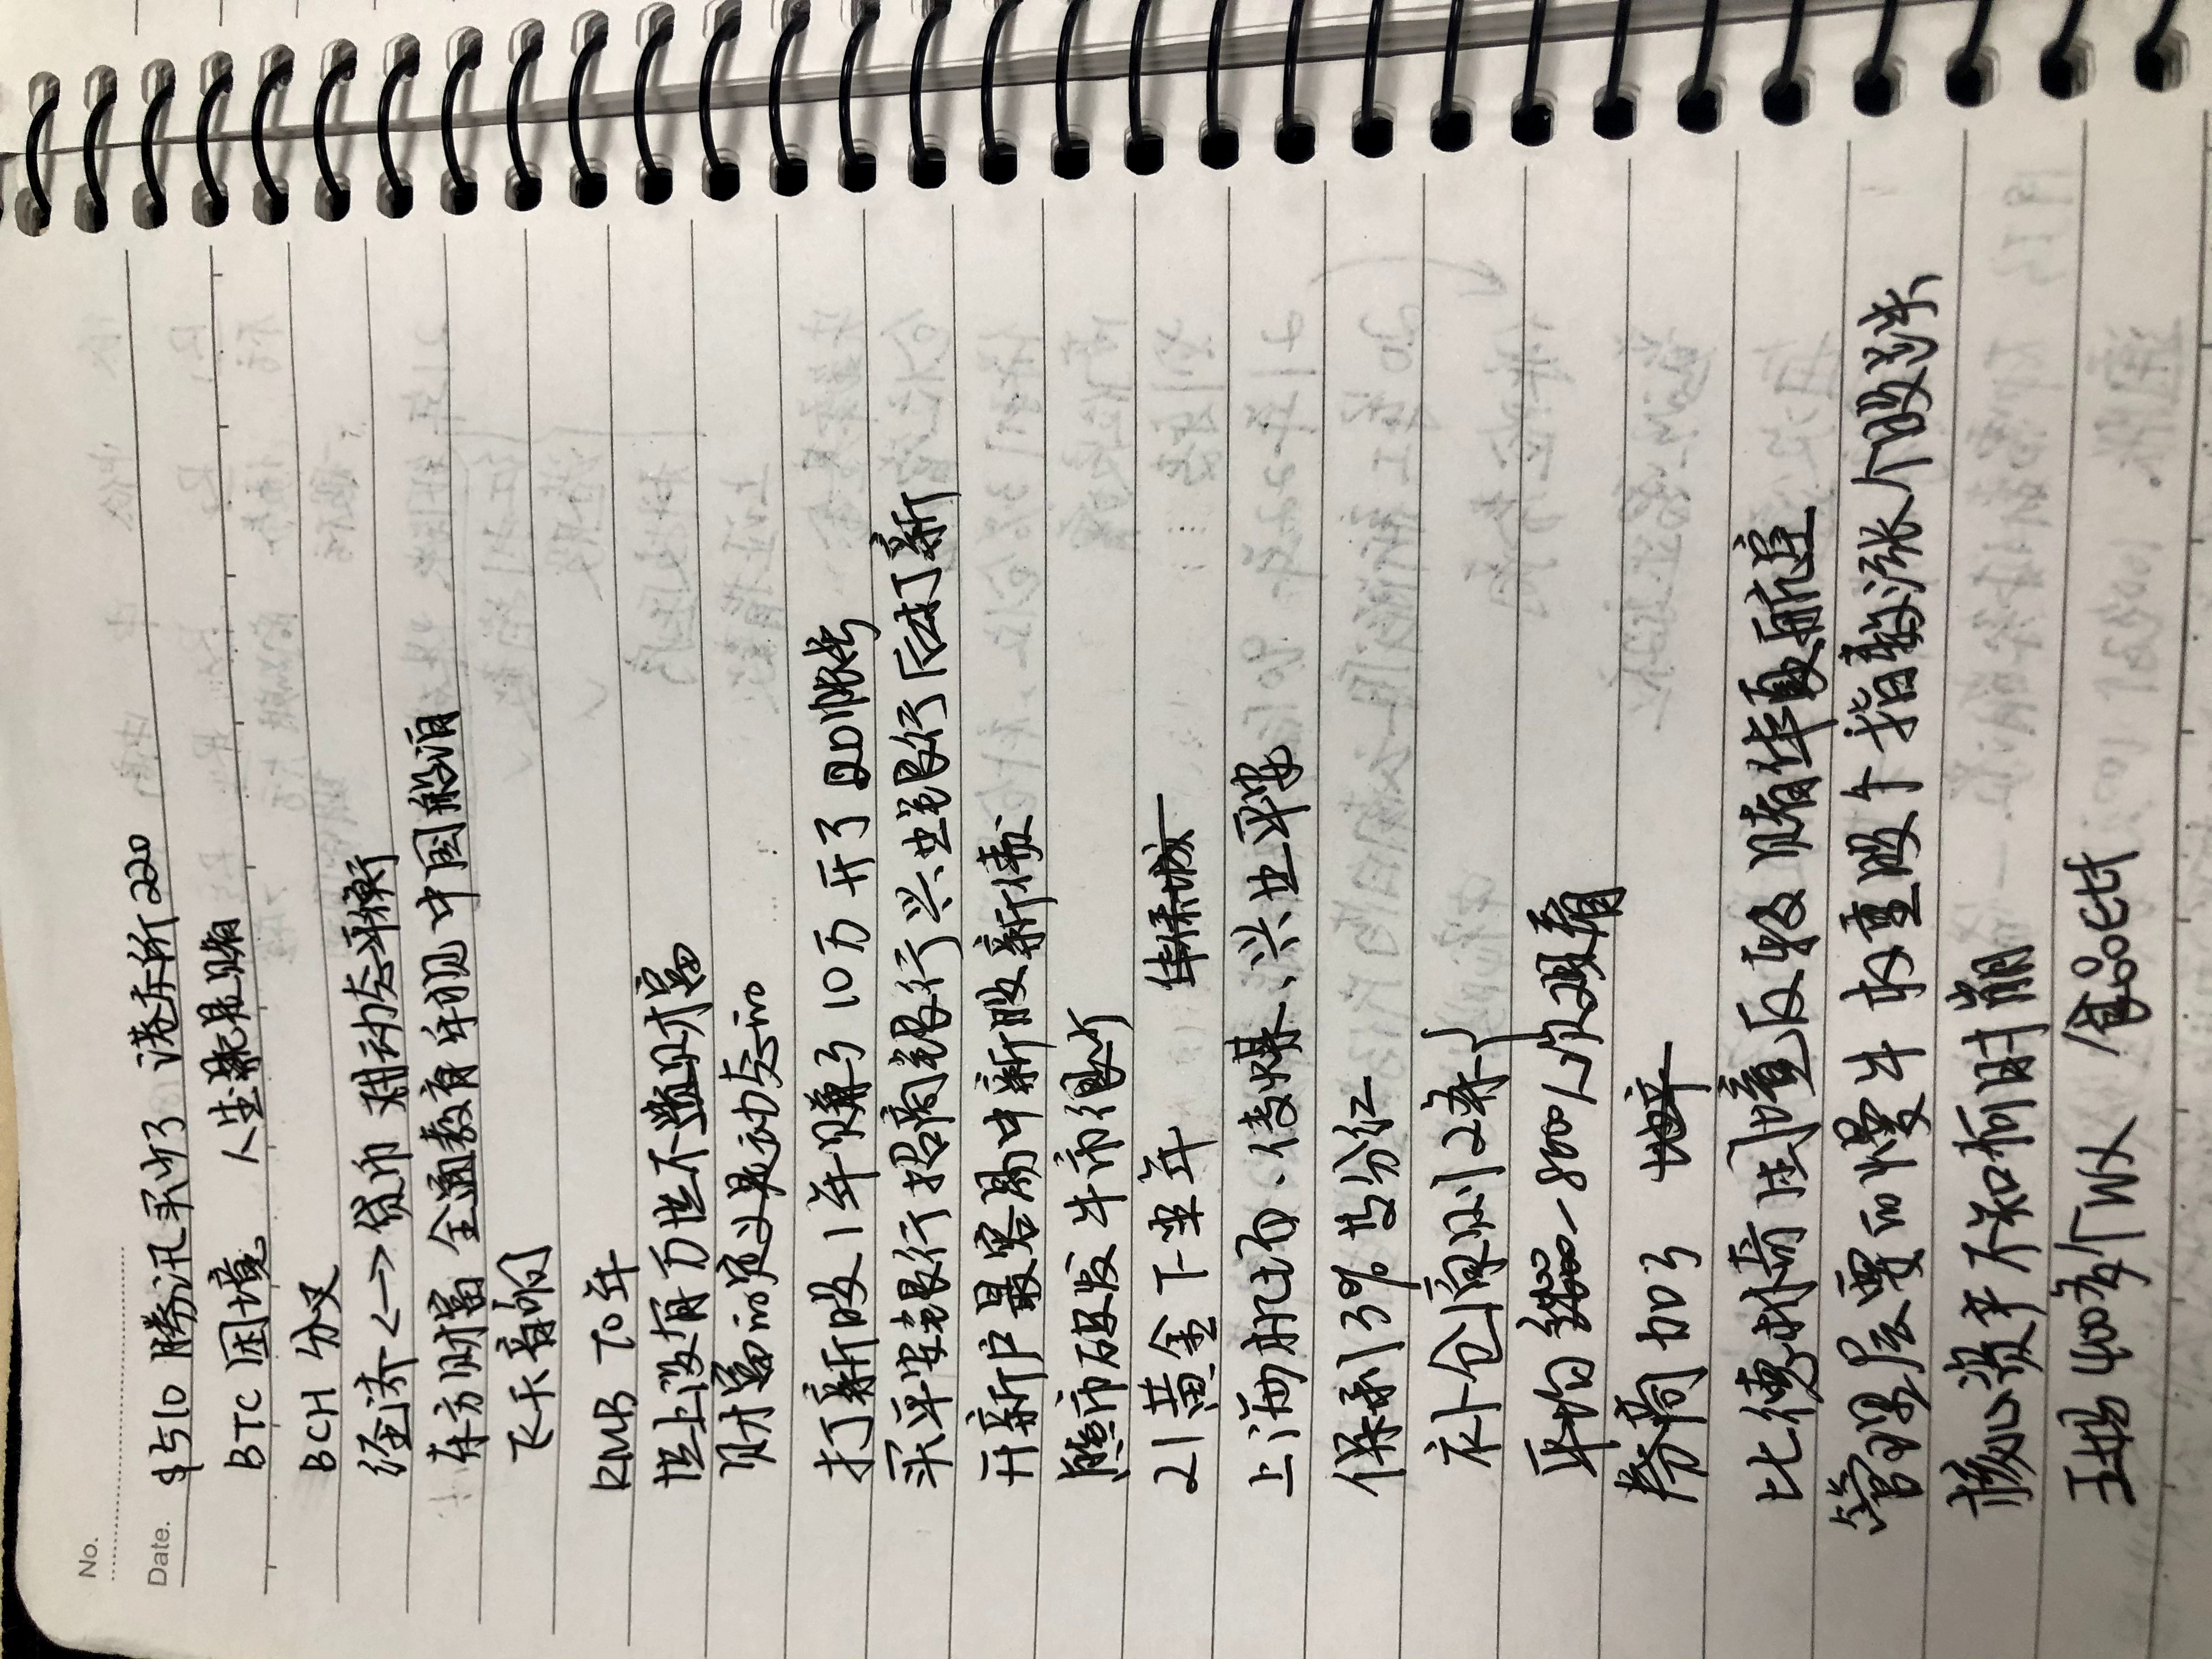 No.
Date. $510 腾讯买少了 港交所220
BTC 困境 人生就是赌
BCH 分叉
经济<-->货币 对动态平衡
东方财富 全通教育 乐视 中国船泊
飞天音响
RMB 70年
世上没有万世不遗财富
财富的定义是动态的
打新股1年赚了10万 开了20帐号
买平安银行 招商银行 兴业银行后打新
开新户最容易中新股新债
熊市破发 牛市很少
21黄金下半年 华侨城
上海机场、传媒、兴业平安
保利3% 分红
补仓原则2条}
平均 -8000人次观看
券商加了 地产
比德林奇困境反转 赌华夏航空
管理层要的慢牛 权重股个指数涨个股跌
核心资产不知何时崩
王妈400多个WX 食品etf